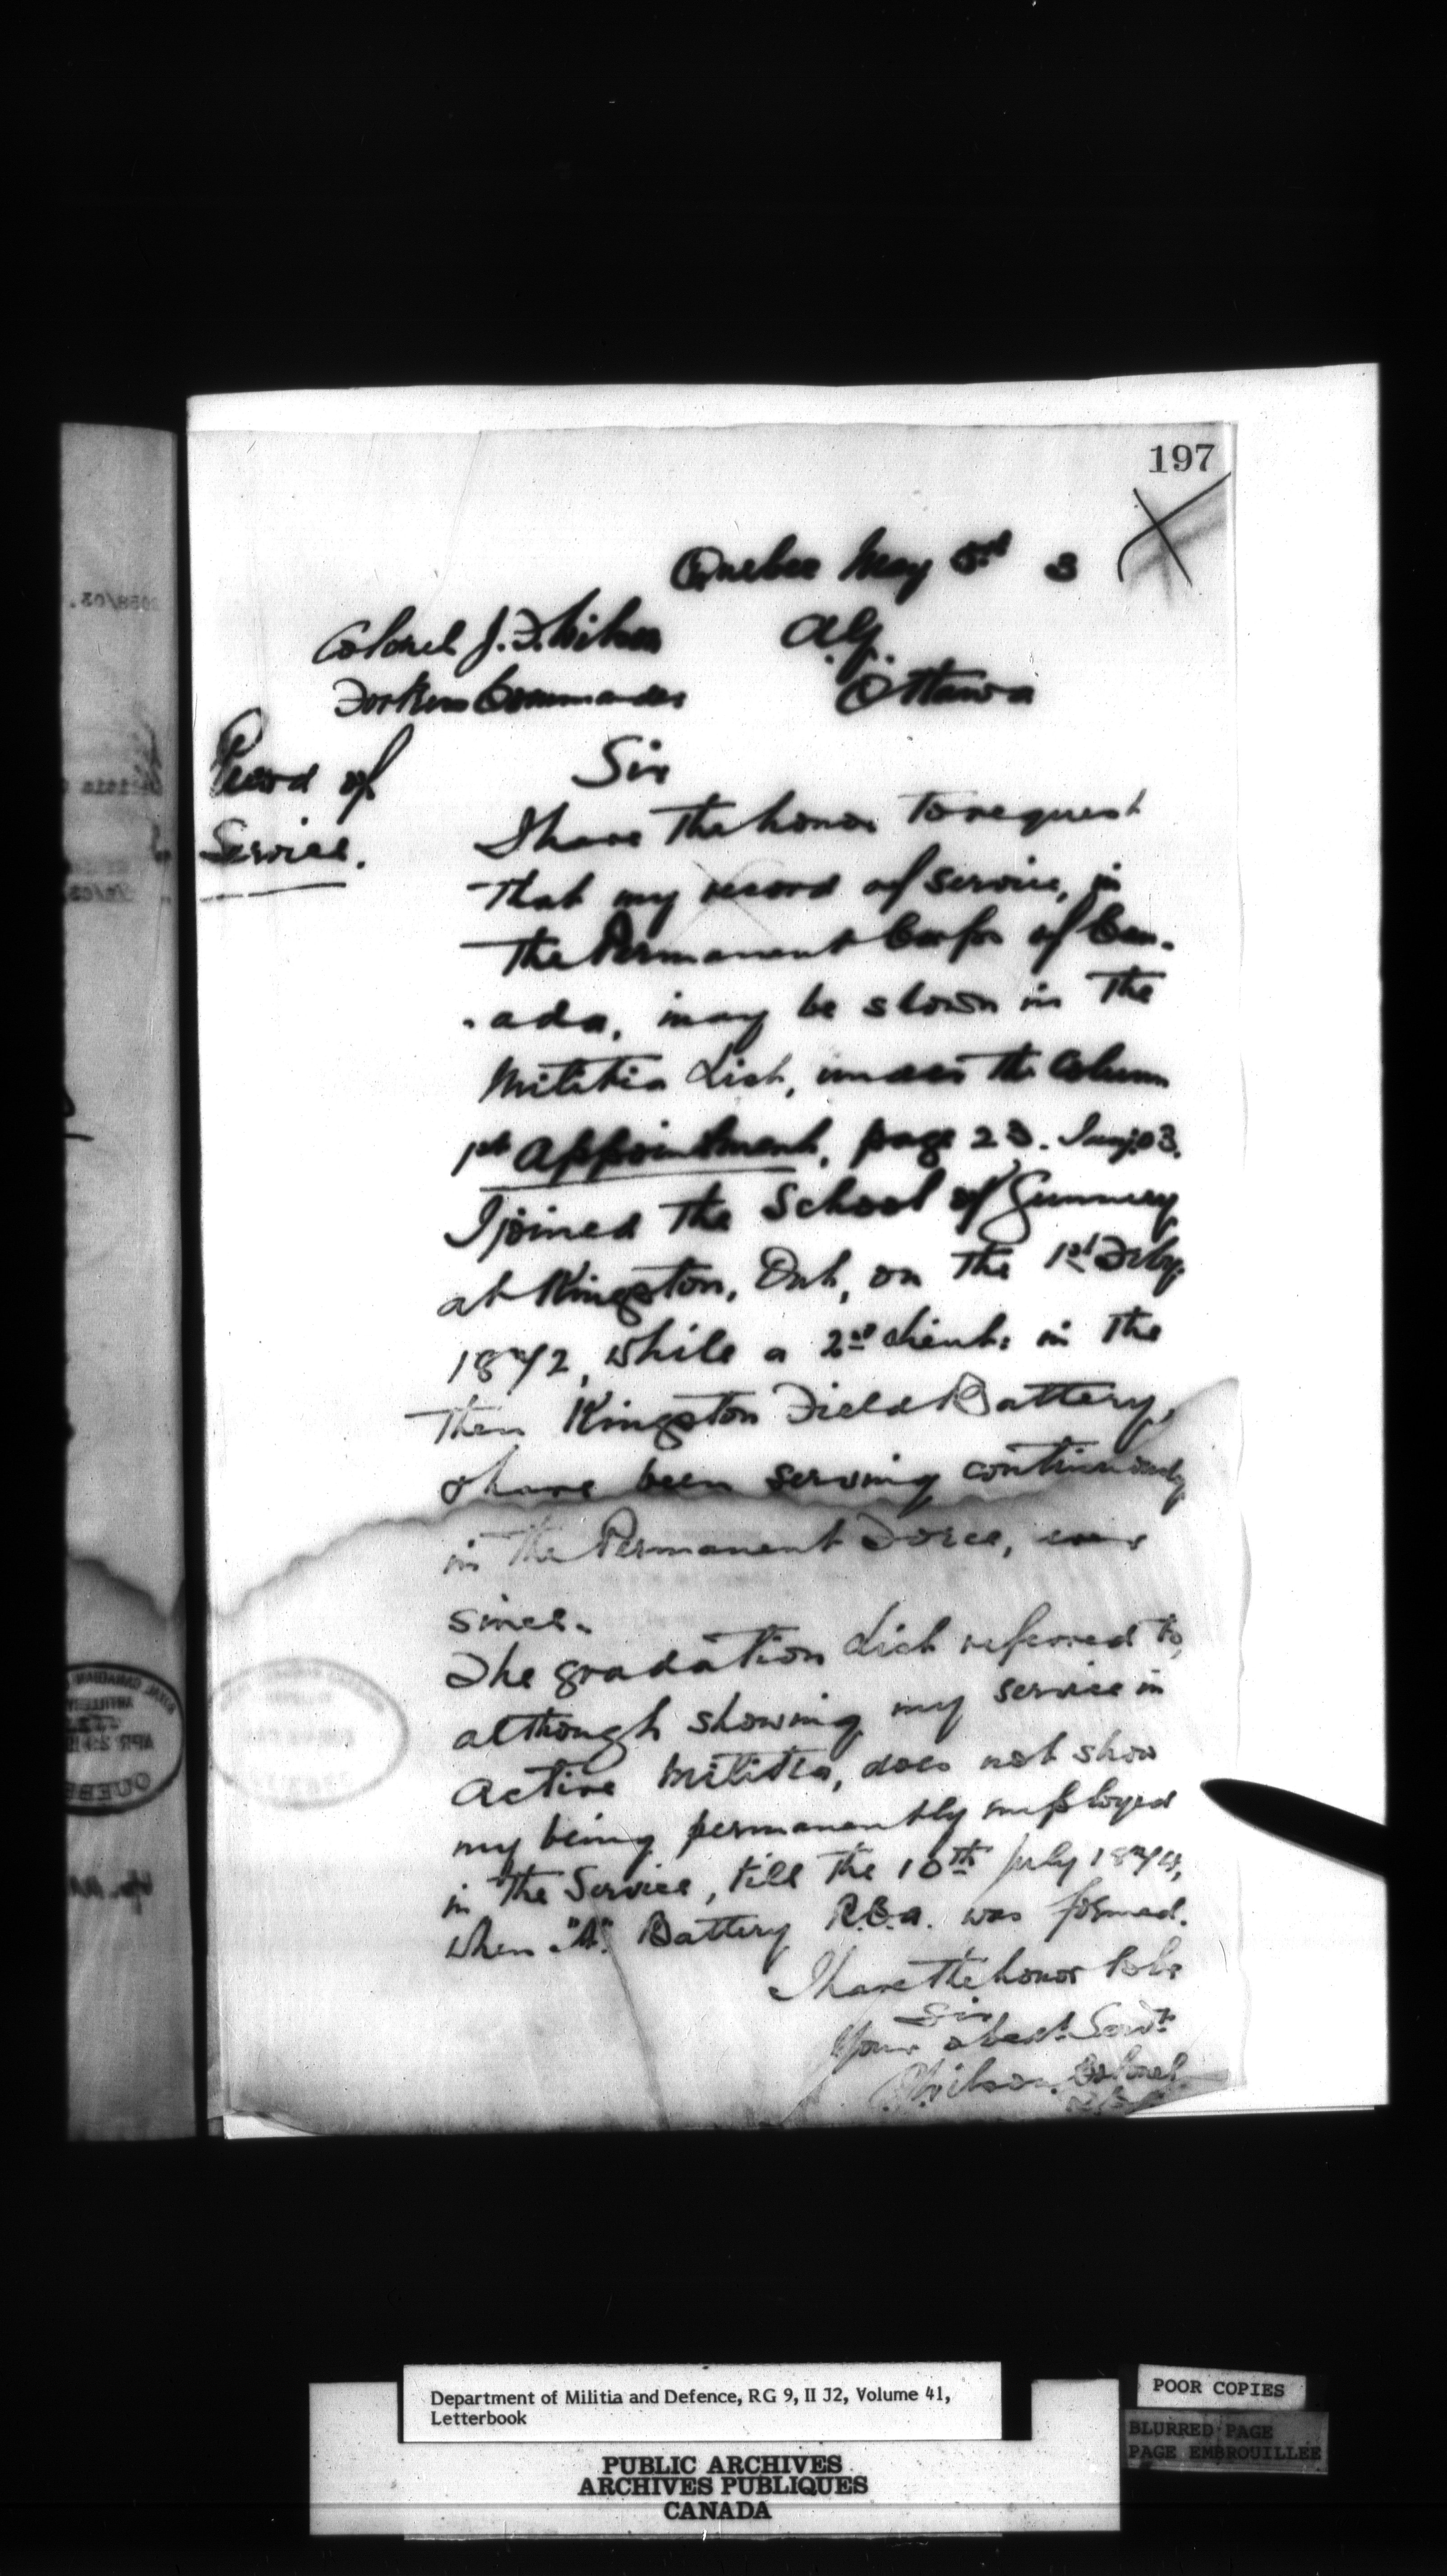 197
Quebec May 3rd 3
Colonel J. F. Wilson A.G.
Fortress Commander Ottawa
Record of
Service.
Sir
I have the honor to request
that my record of service, in
the Permanent Corps of Can-
-ada, may be shown in the
Militia List, under the column
1st Appointment, page 23. Jany. 03.
I joined the School of Gunnery
at Kingston, Ont, on the 1st Feby.
1872, while a 2nd Lieut: in the
then Kingston Field Battery,
& have been serving continuously
in the Permanent Force, ever
since.
The gradation List referred to,
although showing my service in
Active Militia, does not show
my being permanently employed
in the Service, till the 10th July 187
when "A" Battery R.C.A. was formed.
I have the honor to be
Sir
Your obedt. Servt.
Wilson. Colonel
APR
QUEBEC
Department of Militia and Defence, RG 9, II J2, Volume 41,
Letterbook
PUBLIC ARCHIVES
ARCHIVES PUBLIQUES
CANADA
POOR COPIES
BLURRED PAGE
PAGE EMBROUILLEE